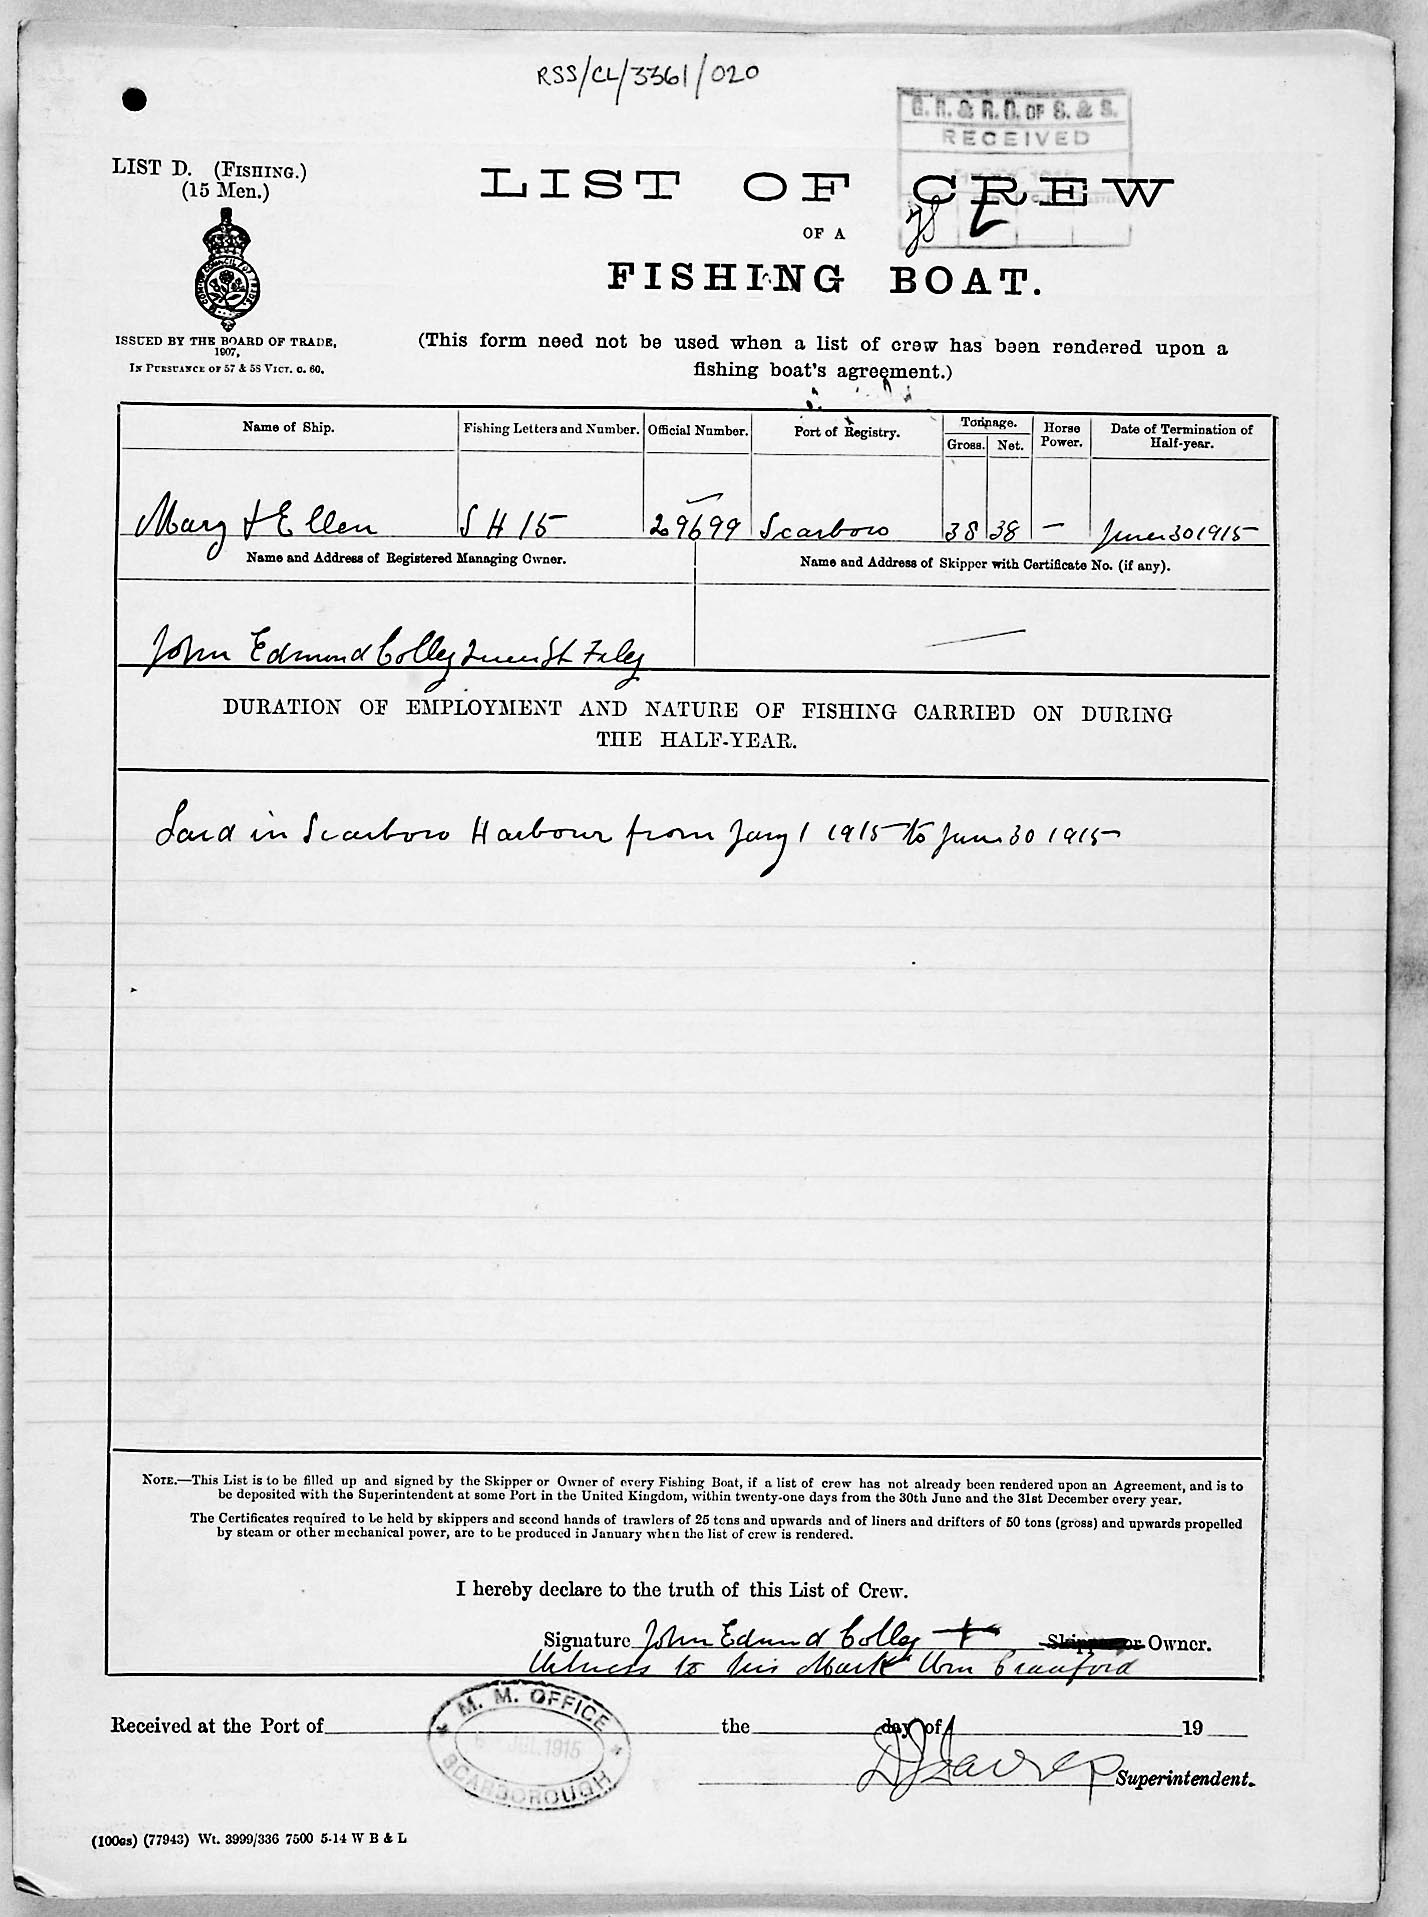 RSS/CL/3361/020
G. R. & R. O. OF S. & S.
RECEIVED
LIST D. (FISHING.)
(15 Men.)
LIST OF CREW
OF A
FISHING BOAT.
ISSUED BY THE BOARD OF TRADE,
1907,
IN PURSUANCE OF 57 & 58 VICT. C. 60.
(This form need not be used when a list of crew has been rendered upon a
fishing boat's agreement.)
Name of Ship. Fishing Letters and Number. Official Number. Port of Registry. Tonnage. Gross. Net. Horse Power. Date of Termination of Half-year.
Mary & Ellen SH 15 29699 Scarboro 38 38 — June 30 1915
Name and Address of Registered Managing Owner. Name and Address of Skipper with Certificate No. (if any).
John Edmond Colley Queen St Filey —
DURATION OF EMPLOYMENT AND NATURE OF FISHING CARRIED ON DURING
THE HALF-YEAR.
Laid in Scarboro Harbour from Jany 1 1915 to June 30 1915
NOTE.—This List is to be filled up and signed by the Skipper or Owner of every Fishing Boat, if a list of crew has not already been rendered upon an Agreement, and is to
be deposited with the Superintendent at some Port in the United Kingdom, within twenty-one days from the 30th June and the 31st December every year.
The Certificates required to be held by skippers and second hands of trawlers of 25 tons and upwards and of liners and drifters of 50 tons (gross) and upwards propelled
by steam or other mechanical power, are to be produced in January when the list of crew is rendered.
I hereby declare to the truth of this List of Crew.
Signature John Edmund Colley + Skipper or Owner.
Witness to his Mark Wm Crawford
Received at the Port of the day of 19
M. M. OFFICE
6 JUL 1915
SCARBOROUGH
Superintendent.
(100gs) (77943) Wt. 3999/336 7500 5-14 W B & L